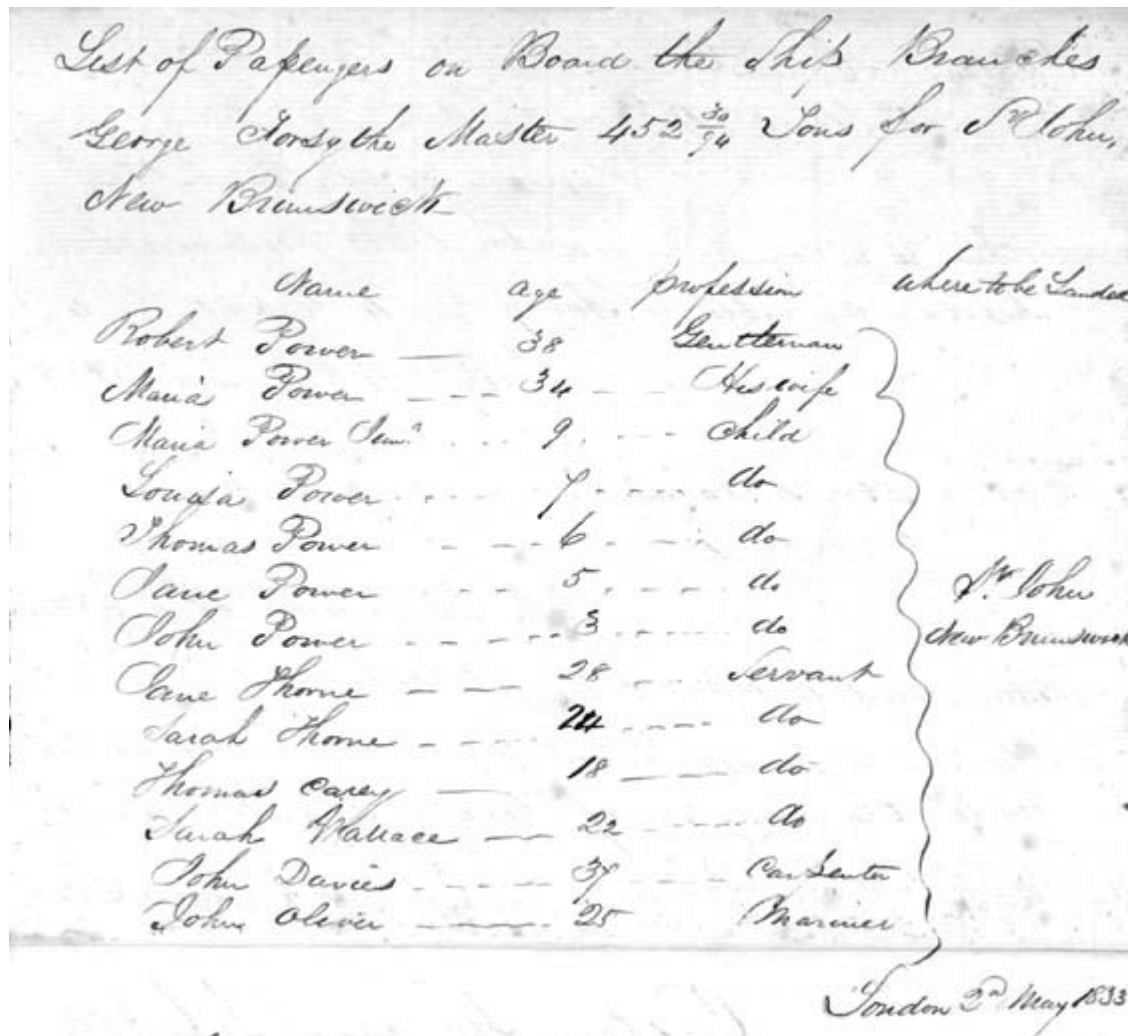 List of Passengers on Board the Ship Branches
George Forsythe Master 452 30/94 Tons for St John,
New Brunswick
Name age profession where to be Landed
Robert Power — 38 Gentleman
Maria Power --- 34 -- His wife
Maria Power Junr --- 9 --- Child
Louisa Power --- 7 ---- do
Thomas Power --- 6 --- do
Jane Power --- 5 --- do St. John
John Power --- 3 ---- do New Brunswick
Jane Thorne --- 28 --- Servant
Sarah Thorne ---- 24 ---- do
Thomas Carey — 18 --- do
Sarah Wallace — 22 ---- do
John Davies ---- 37 ---- Carpenter
John Oliver ---- 25 Mariner
London 2d May 1833